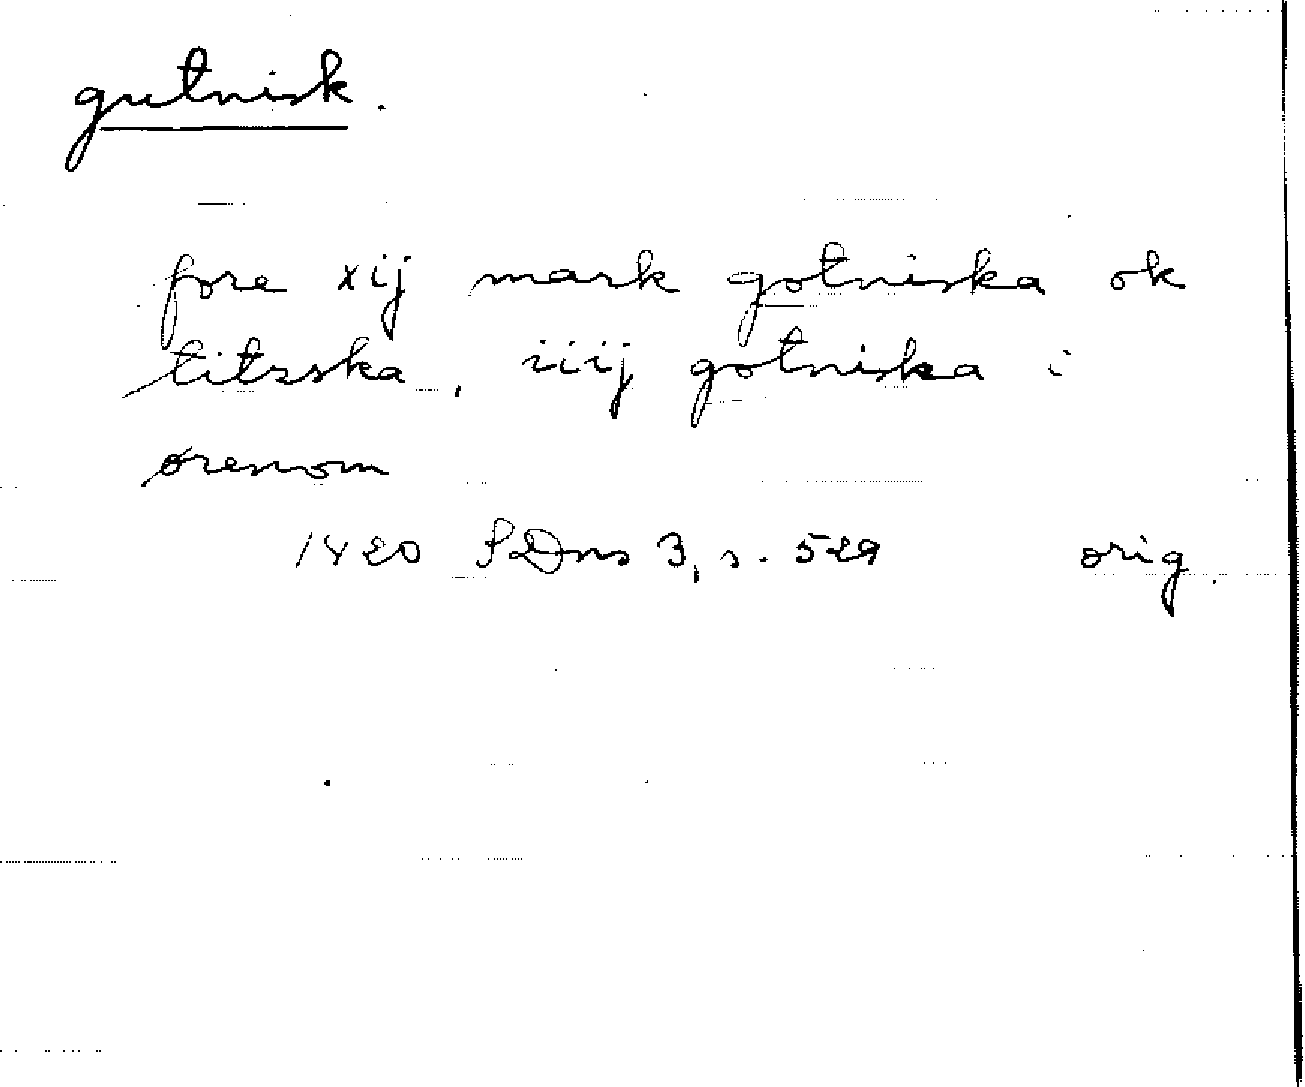 gutnisk.
fore xij mark gotniska ok
titzska, iiij gotniska i
ørenom
1420 SDns 3, s. 529 orig.